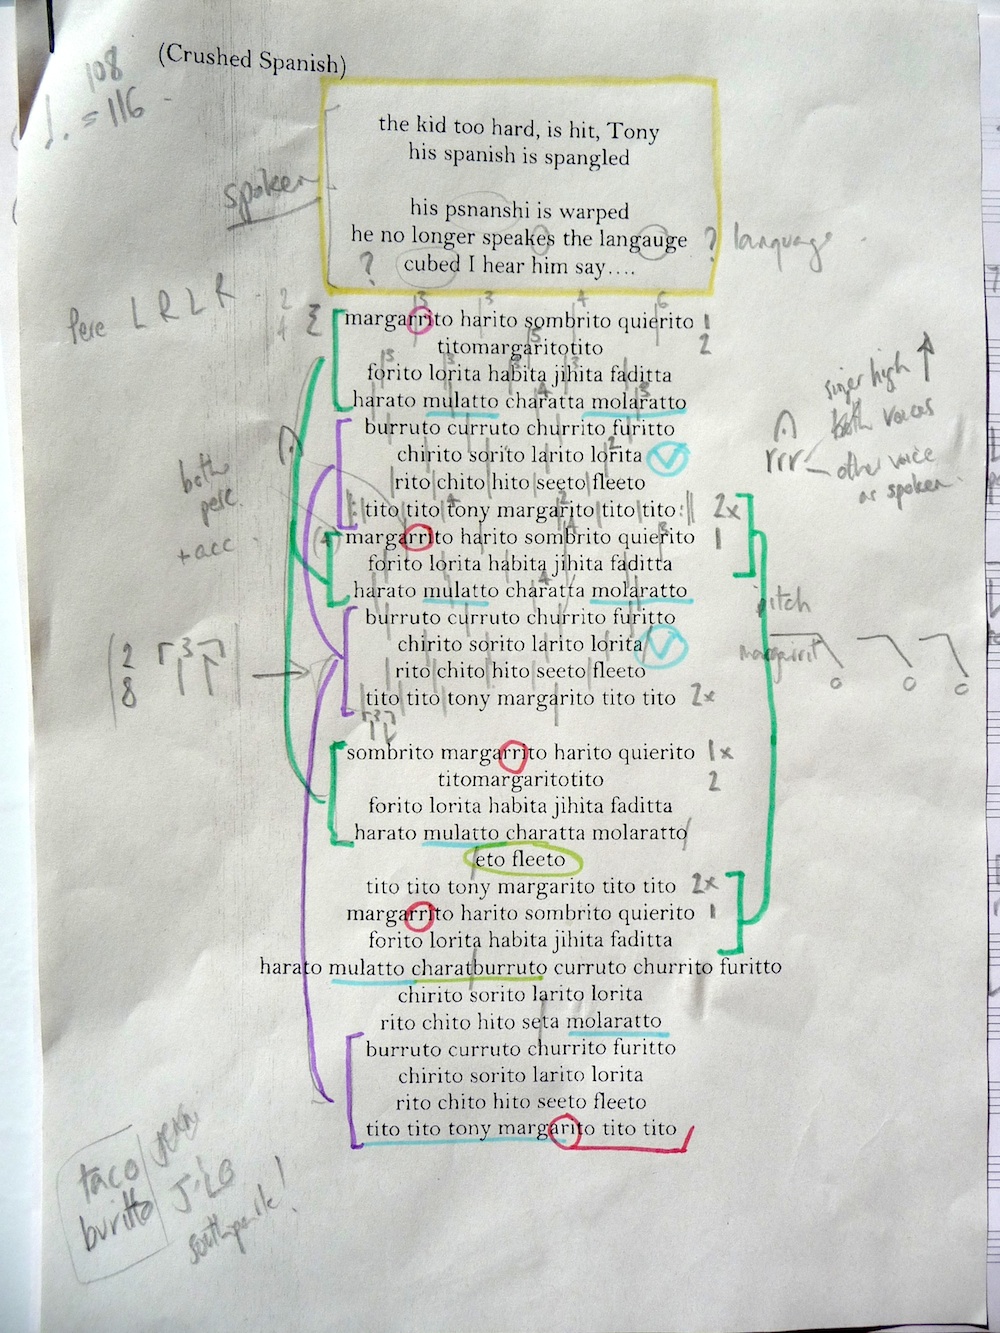 (Crushed Spanish)
108
= 116
the kid too hard, is hit, Tony
his spanish is spangled
spoken
his psnanshi is warped
he no longer speakes the langauge ? language
? cubed I hear him say....
Perc L R L R
2 3 3 4 6
4
margarrito harito sombrito quierito 1
titomargaritotito 2
forito lorita habita jihita faditta
harato mulatto charatta molaratto
burruto curruto churrito furitto
chirito sorito larito lorita
rito chito hito seeto fleeto
||: tito tito tony margarito tito tito :|| 2x
margarrito harito sombrito quierito 1
forito lorita habita jihita faditta
harato mulatto charatta molaratto
burruto curruto churrito furitto
chirito sorito larito lorita
rito chito hito seeto fleeto
tito tito tony margarito tito tito 2x
singer high
both voices
rrr
other voice
as spoken
both
perc.
+ acc
pitch
margarrit
2 3
8
3
sombrito margarrito harito quierito 1x
titomargaritotito 2
forito lorita habita jihita faditta
harato mulatto charatta molaratto
eto fleeto
tito tito tony margarito tito tito 2x
margarrito harito sombrito quierito 1
forito lorita habita jihita faditta
harato mulatto charatburruto curruto churrito furitto
chirito sorito larito lorita
rito chito hito seta molaratto
burruto curruto churrito furitto
chirito sorito larito lorita
rito chito hito seeto fleeto
tito tito tony margarito tito tito
taco
buritto
J-LO
southparke!